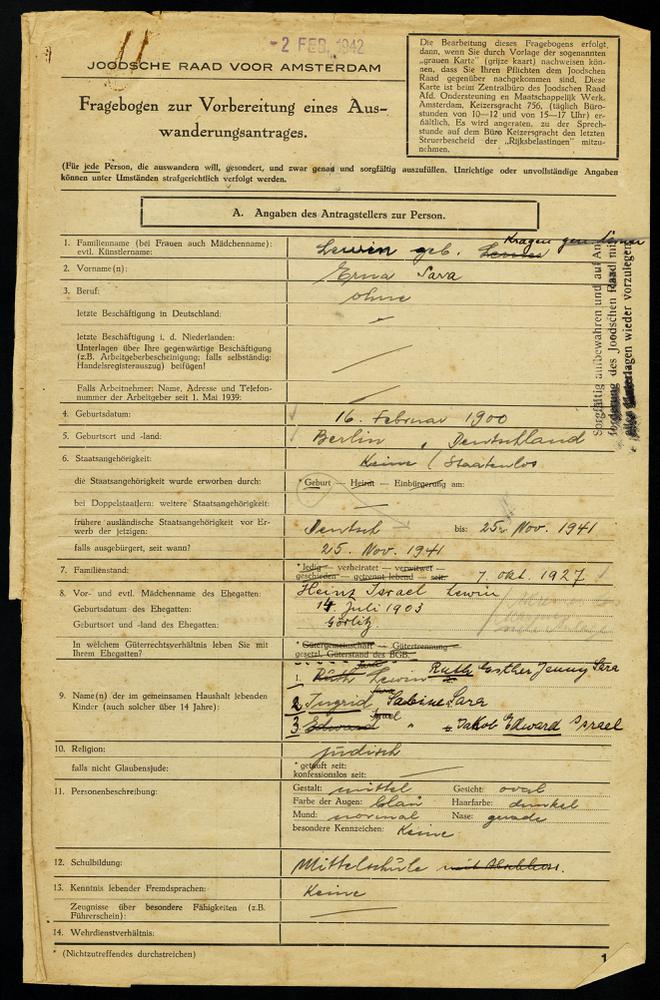 - 2 FEB. 1942
JOODSCHE RAAD VOOR AMSTERDAM
Fragebogen zur Vorbereitung eines Aus-
wanderungsantrages.
Die Bearbeitung dieses Fragebogens erfolgt,
dann, wenn Sie durch Vorlage der sogenannten
„grauen Karte" (grijze kaart) nachweisen kön-
nen, dass Sie Ihren Pflichten dem Joodschen
Raad gegenüber nachgekommen sind. Diese
Karte ist beim Zentralbüro des Joodschen Raad
Afd. Ondersteuning en Maatschappelijk Werk,
Amsterdam, Keizersgracht 756, (täglich Büro-
stunden von 10—12 und von 15—17 Uhr) er-
hältlich. Es wird angeraten, zu der Sprech-
stunde auf dem Büro Keizersgracht den letzten
Steuerbescheid der „Rijksbelastingen" mitzu-
nehmen.
(Für jede Person, die auswandern will, gesondert, und zwar genau und sorgfältig auszufüllen. Unrichtige oder unvollständige Angaben
können unter Umständen strafgerichtlich verfolgt werden.
A. Angaben des Antragstellers zur Person.
1. Familienname (bei Frauen auch Mädchenname): Lewin geb.
evtl. Künstlername:
2. Vorname(n): Erna Sara
3. Beruf: ohne
letzte Beschäftigung in Deutschland:
letzte Beschäftigung i. d. Niederlanden:
Unterlagen über Ihre gegenwärtige Beschäftigung
(z.B. Arbeitgeberbescheinigung; falls selbständig:
Handelsregisterauszug) beifügen!
Falls Arbeitnehmer: Name, Adresse und Telefon-
nummer der Arbeitgeber seit 1. Mai 1939:
Sorgfältig aufbewahren und auf An-
forderung des Joodschen Raad mit
allen Unterlagen wieder vorzulegen
4. Geburtsdatum: 16. Februar 1900
5. Geburtsort und -land: Berlin, Deutschland
6. Staatsangehörigkeit: Keine / Staatenlos
die Staatsangehörigkeit wurde erworben durch: * Geburt — Heirat — Einbürgerung am:
bei Doppelstaatlern: weitere Staatsangehörigkeit: —
frühere ausländische Staatsangehörigkeit vor Er-
werb der jetzigen: Deutsch bis: 25. Nov. 1941
falls ausgebürgert, seit wann? 25. Nov. 1941
7. Familienstand: * ledig — verheiratet — verwitwet —
geschieden — getrennt lebend — seit: 7. Okt. 1927
8. Vor- und evtl. Mädchenname des Ehegatten: Heinz Israel Lewin
Geburtsdatum des Ehegatten: 14. Juli 1903
Geburtsort und -land des Ehegatten: Görlitz
In welchem Güterrechtsverhältnis leben Sie mit
Ihrem Ehegatten?
* Gütergemeinschaft — Gütertrennung —
gesetzl. Güterstand des BGB.
9. Name(n) der im gemeinsamen Haushalt lebenden
Kinder (auch solcher über 14 Jahre):
1. Ruth Lewin Ruth Esther Jenny Sara
2 Ingrid Sabine Sara
3 Edward " Jakob Edward Israel
10. Religion: jüdisch
falls nicht Glaubensjude: * getauft seit:
konfessionslos seit:
11. Personenbeschreibung: Gestalt: mittel Gesicht: oval
Farbe der Augen: blau Haarfarbe: dunkel
Mund: normal Nase: gerade
besondere Kennzeichen: Keine
12. Schulbildung: Mittelschule
13. Kenntnis lebender Fremdsprachen: Keine
Zeugnisse über besondere Fähigkeiten (z.B.
Führerschein):
14. Wehrdienstverhältnis:
* (Nichtzutreffendes durchstreichen)
1